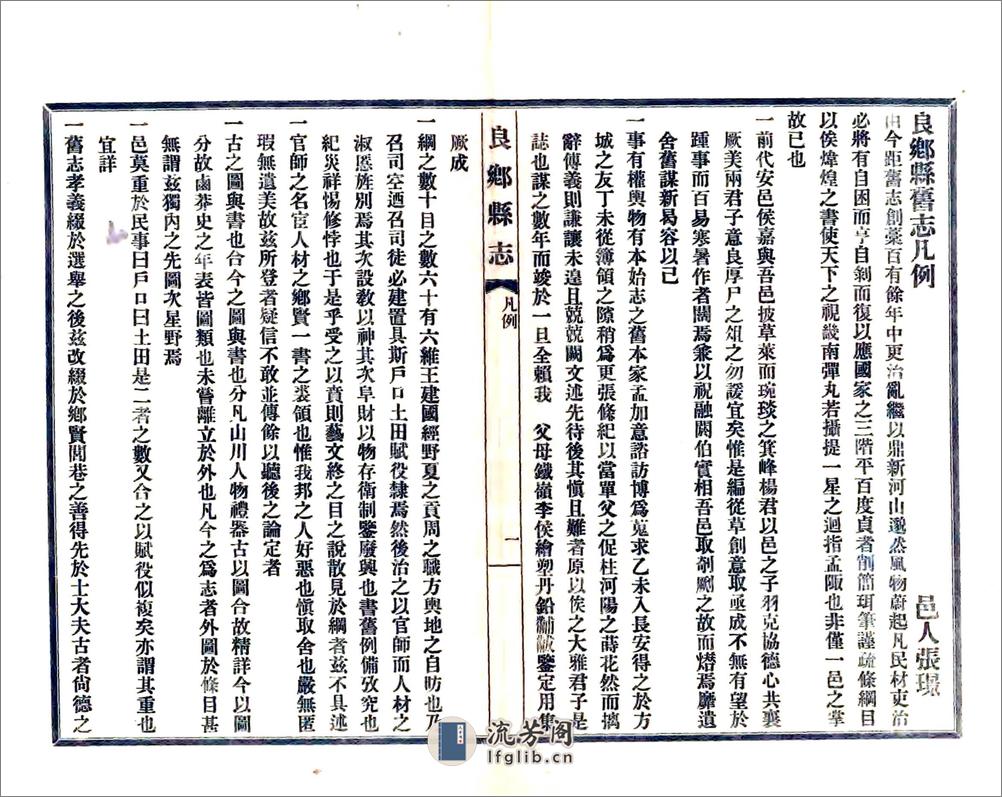 良鄉縣舊志凡例 邑人張璟
由今距舊志創藁百有餘年中更治亂繼以鼎新河山邈然風物蔚起凡民材吏治
必將有自困而亨自剝而復以應國家之三階平百度貞者削箇珥筆謹疏條綱目
以俟煒煌之書使天下之視畿南彈丸若攝提一星之迴指孟陬也非僅一邑之掌
故已也
一前代安邑侯嘉與吾邑披草萊而琬琰之箕峰楊君以邑之子羽克協德心共襄
厥美兩君子意良厚尸之俎之勿諼宜矣惟是編從草創意取亟成不無有望於
踵事而百易寒暑作者闃焉兼以祝融閼伯實相吾邑取剞劂之故而熸焉靡遺
舍舊謀新曷容以已
一事有權輿物有本始志之舊本家孟加意諮訪博為蒐求乙未入長安得之於方
城之友丁未從簿領之隙稍為更張條紀以當單父之促柱河陽之蒔花然而摛
辭傅義則謙讓未遑且兢兢闕文述先待後其慎且難者原以俟之大雅君子是
誌也謀之數年而竣於一旦全賴我 父母鐵嶺李侯繪塑丹鉛黼黻鑒定用集
厥成
良鄉縣志 凡例 一
一綱之數十目之數六十有六維王建國經野夏之貢周之職方輿地之自昉也乃
召司空迺召司徒必建置具斯戶口土田賦役隸焉然後治之以官師而人材之
淑慝旌別焉其次設敎以神其次阜財以物存衛制鑒廢興也書舊例備攷究也
紀災祥惕修悖也于是乎受之以賁則藝文終之目之說散見於綱者兹不具述
一官師之名宦人材之鄉賢一書之裘領也惟我邦之人好惡也愼取舍也嚴無匿
瑕無遺美故兹所登者疑信不敢並傳餘以聽後之論定者
一古之圖與書也合今之圖與書也分凡山川人物禮器古以圖合故精詳今以圖
分故鹵莽史之年表皆圖類也未嘗離立於外也凡今之為志者外圖於條目甚
無謂兹獨內之先圖次星野焉
一邑莫重於民事曰戶口曰土田是二者之數又合之以賦役似複矣亦謂其重也
宜詳
一舊志孝義綴於選舉之後兹改綴於鄉賢閭巷之善得先於士大夫古者尙德之
流芳阁
lfglib.cn